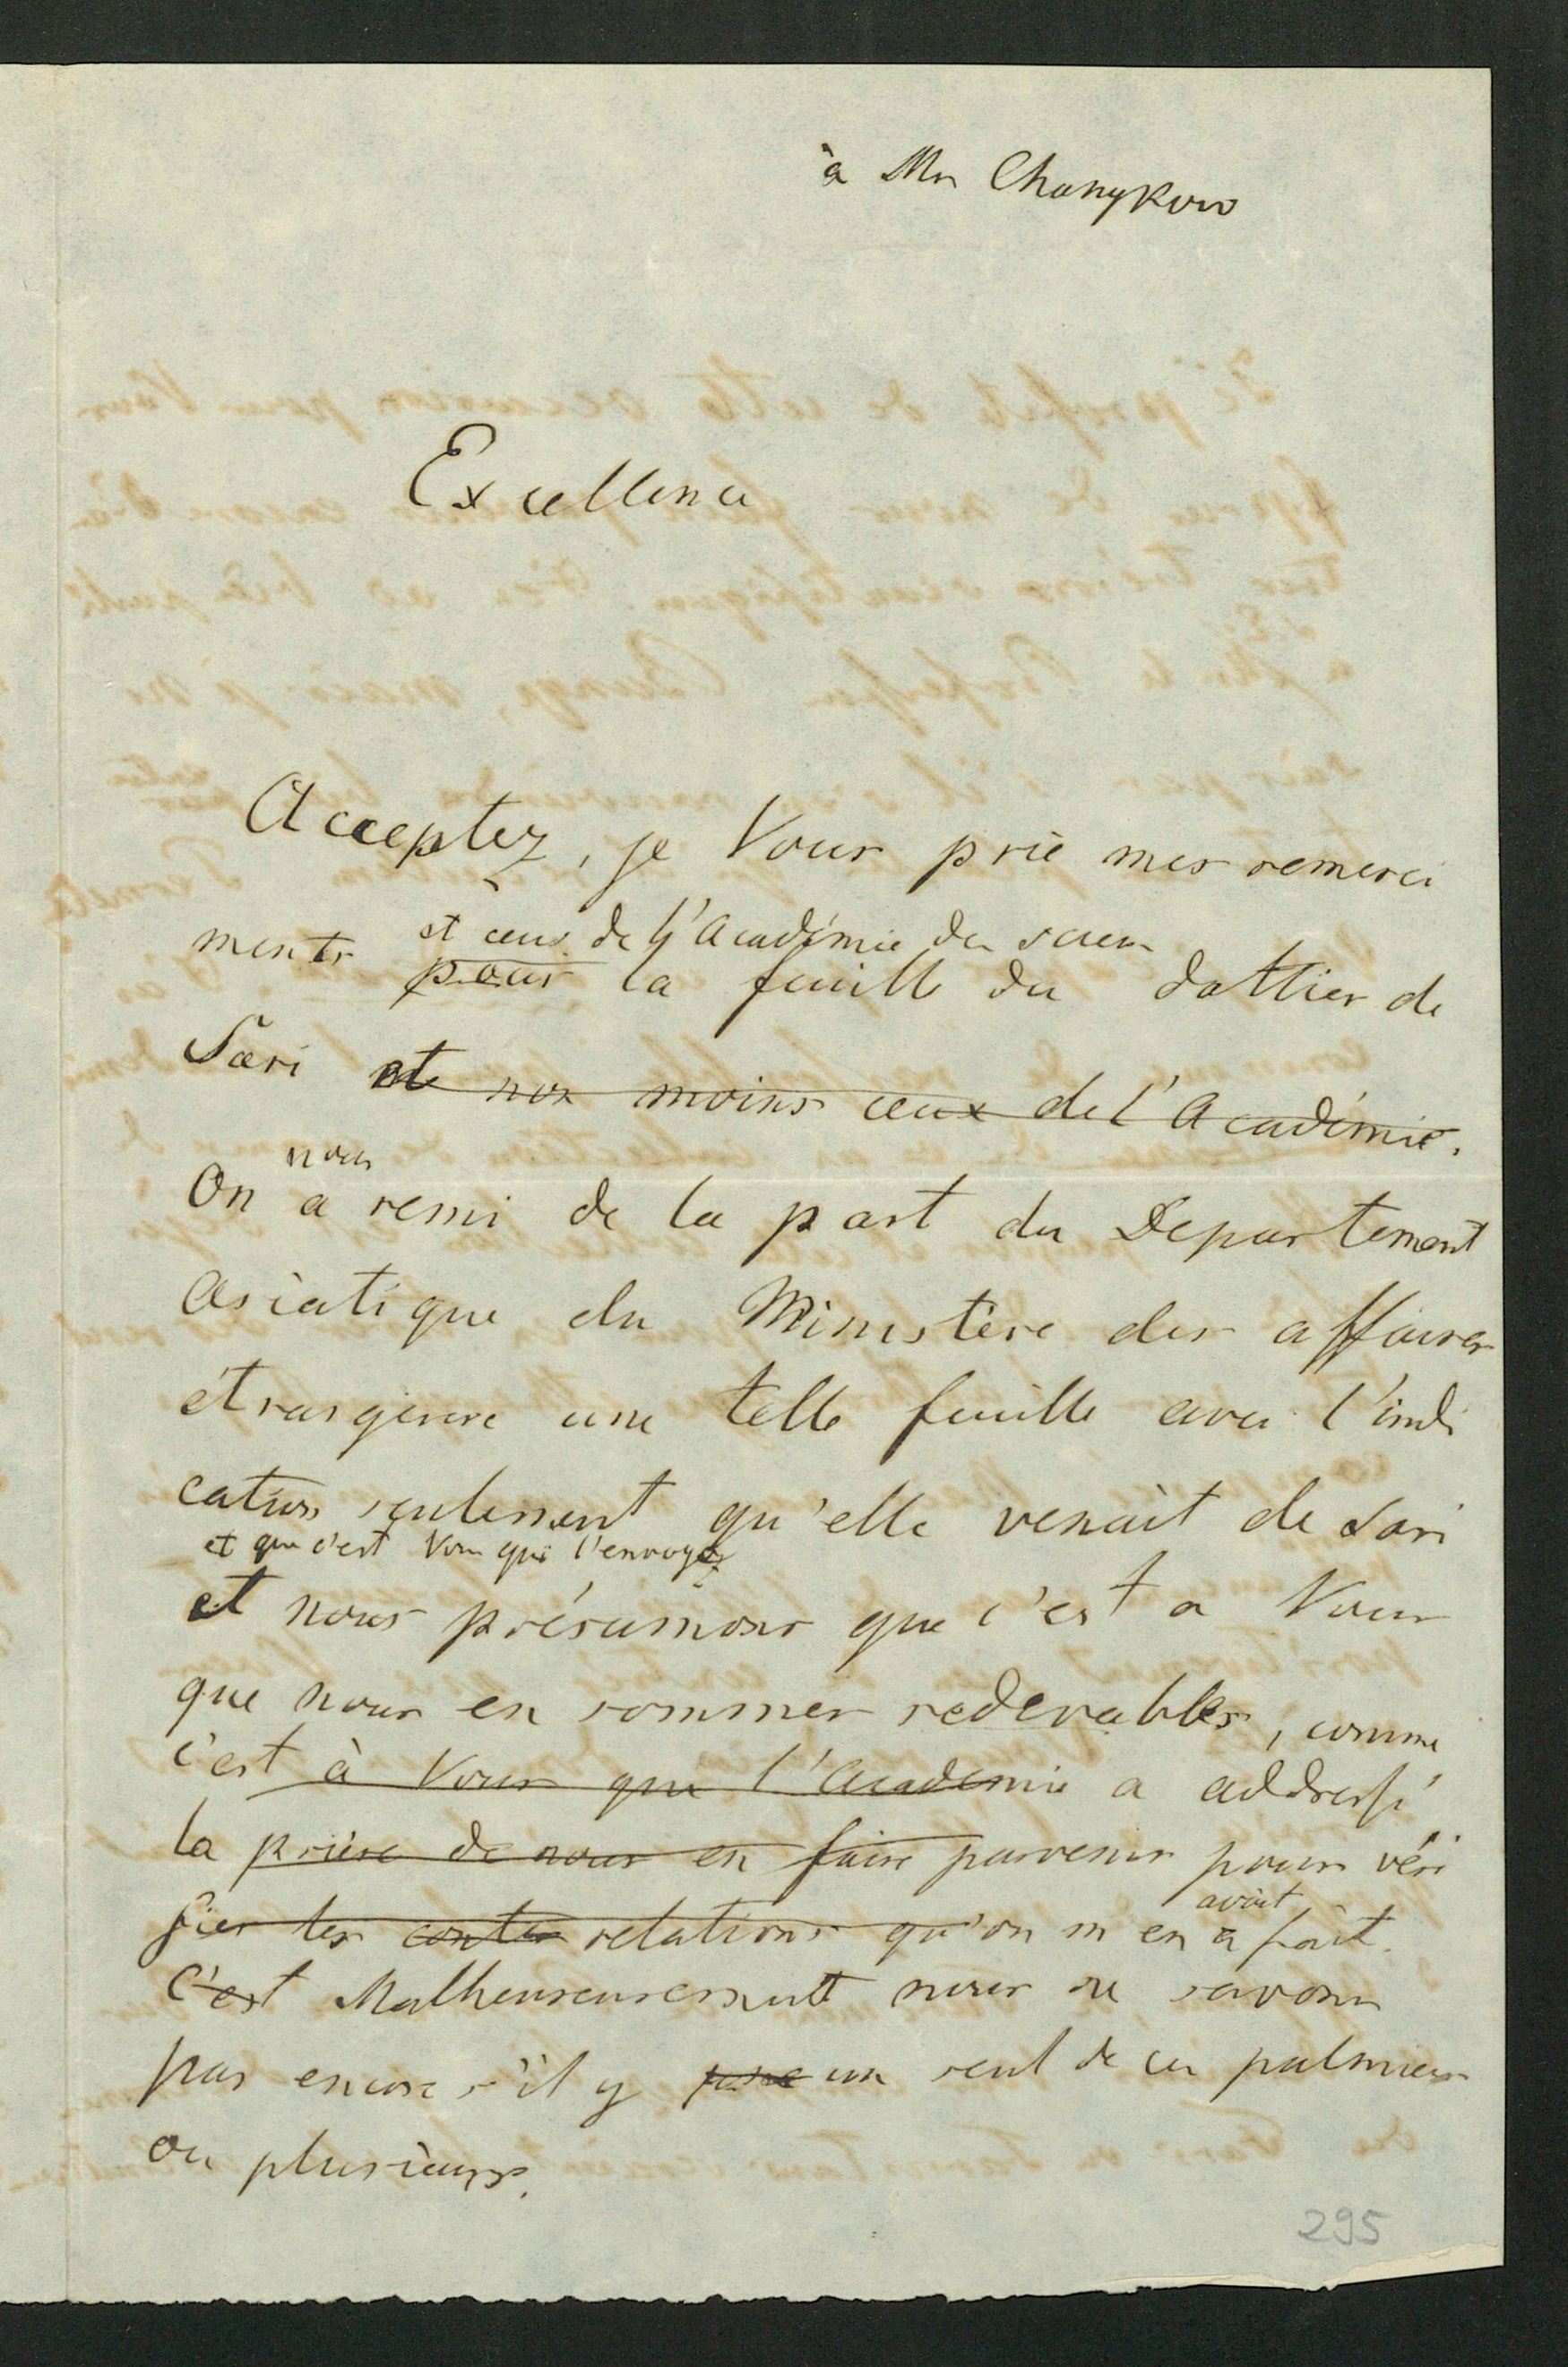 à Mr Chanykow
Excellence
Acceptez, je Vous prie mes remerci
et ceux de l'Académie des scien
ments pour la feuille du dattier de
Sari et non moins ceux de l'Academie.
nous
On a remi de la part du Departement
Asiatique du Ministère des affaires
étrangeres une telle feuille avec l'indi
cation seulement qu'elle venait de Sari
et que c'est Vous qui l'envoyez
et nous présumons que c'est a Vous
que nous en sommes redevables, comme
c'est à Vous que l'Academie a addressé
la prière de nous en faire parvenir pour véri
avait
fier les contes relations qu'on m'en a fait.
C'est Malheureusement nous ne savons
pas encore s'il y un seul de ces palmiers
ou plusieurs.
295